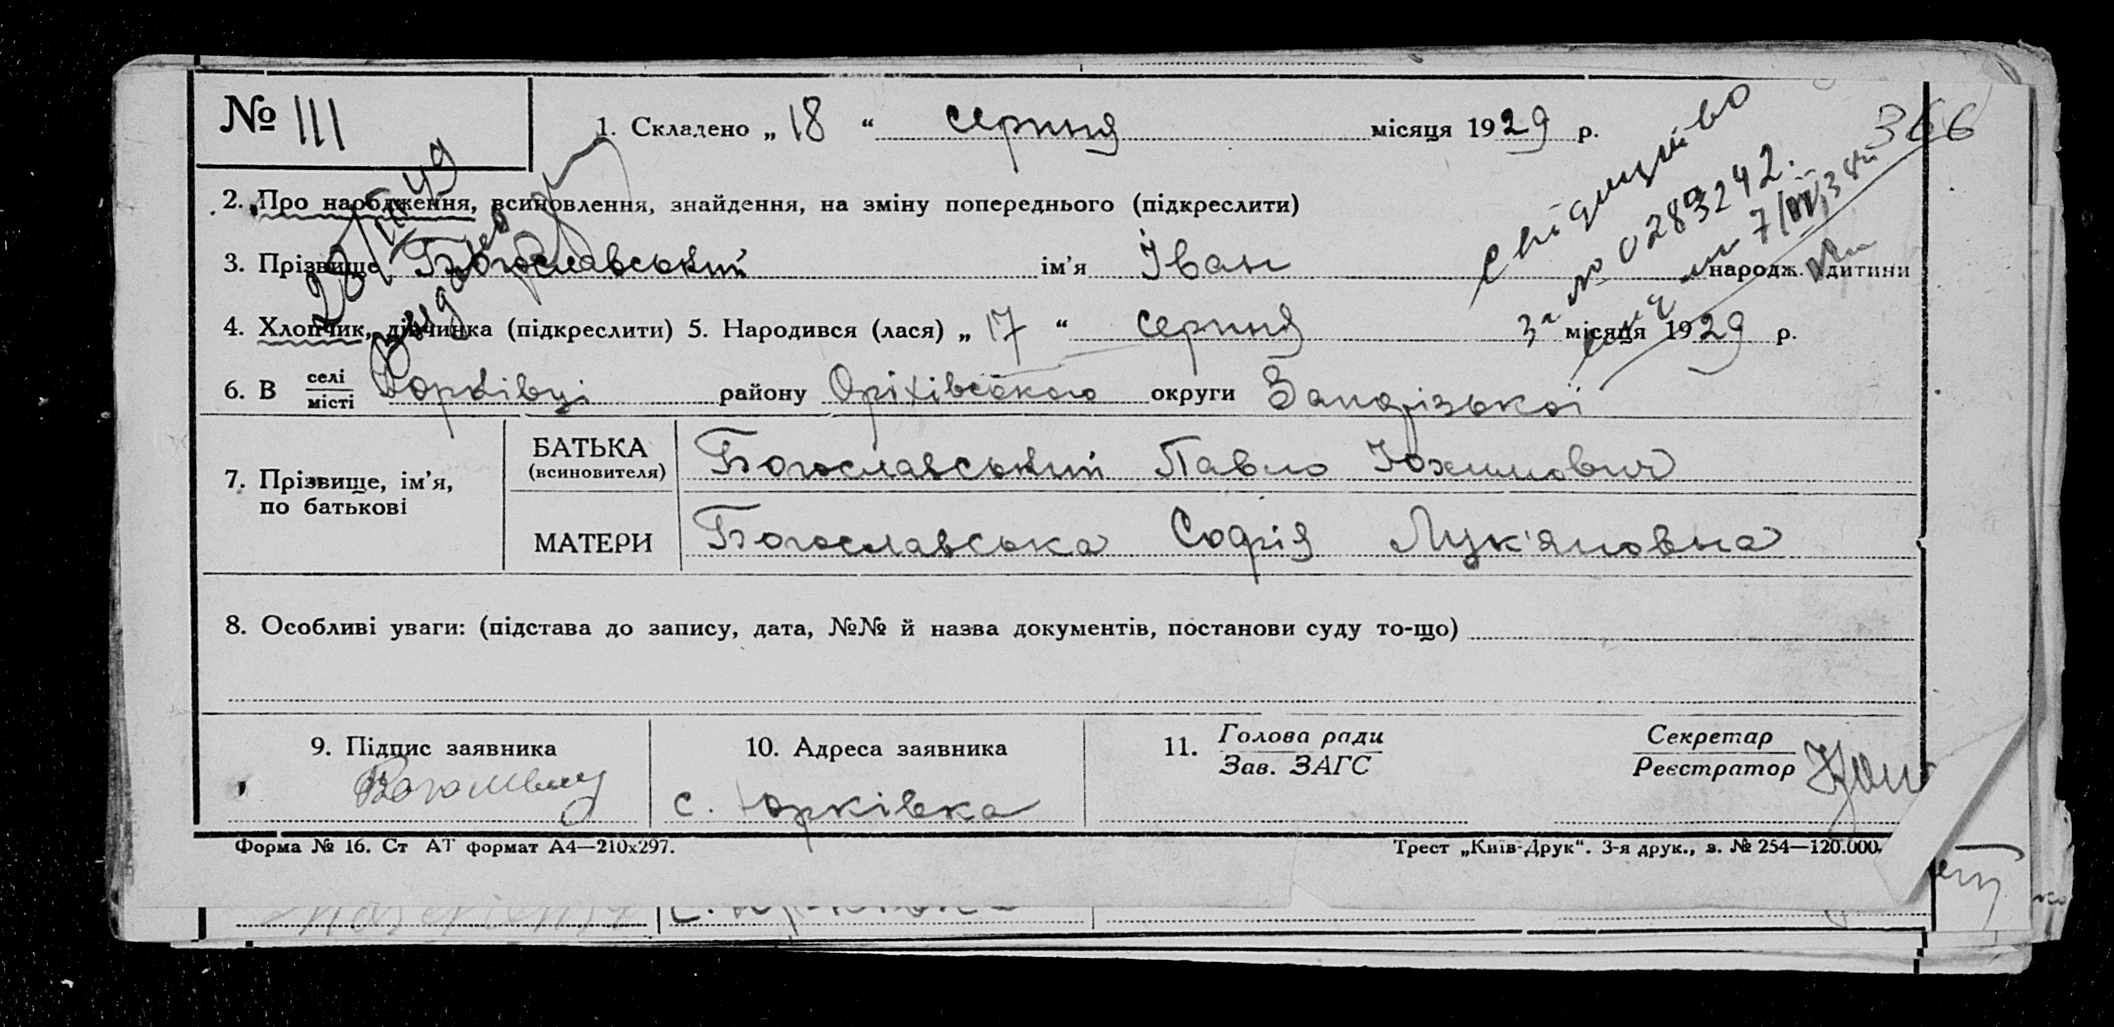 № 111
1. Складено „ 18 “ серпня місяця 1929 р.
366
2. Про народження, всиновлення, знайдення, на зміну попереднього (підкреслити)
3. Прізвище Богославський ім’я Іван народж. дитини
4. Хлопчик, дівчинка (підкреслити) 5. Народився (лася) „ 17 “ серпня місяця 1929 р.
6. В селі місті Юрківці району Оріхівського округи Запорізької
7. Прізвище, ім’я, по батькові
БАТЬКА (всиновителя) Богославський Павло Юхимович
МАТЕРИ Богославська Софія Лук'яновна
8. Особливі уваги: (підстава до запису, дата, №№ й назва документів, постанови суду то-що)
9. Підпис заявника
10. Адреса заявника
с. Юрківка
11. Голова ради
Зав. ЗАГС
Секретар
Реєстратор
Форма № 16. Ст АТ формат А4—210х297.
Трест „Київ-Друк“. 3-я друк., з. № 254—120.000.
свідоцтво
за № 0289242.